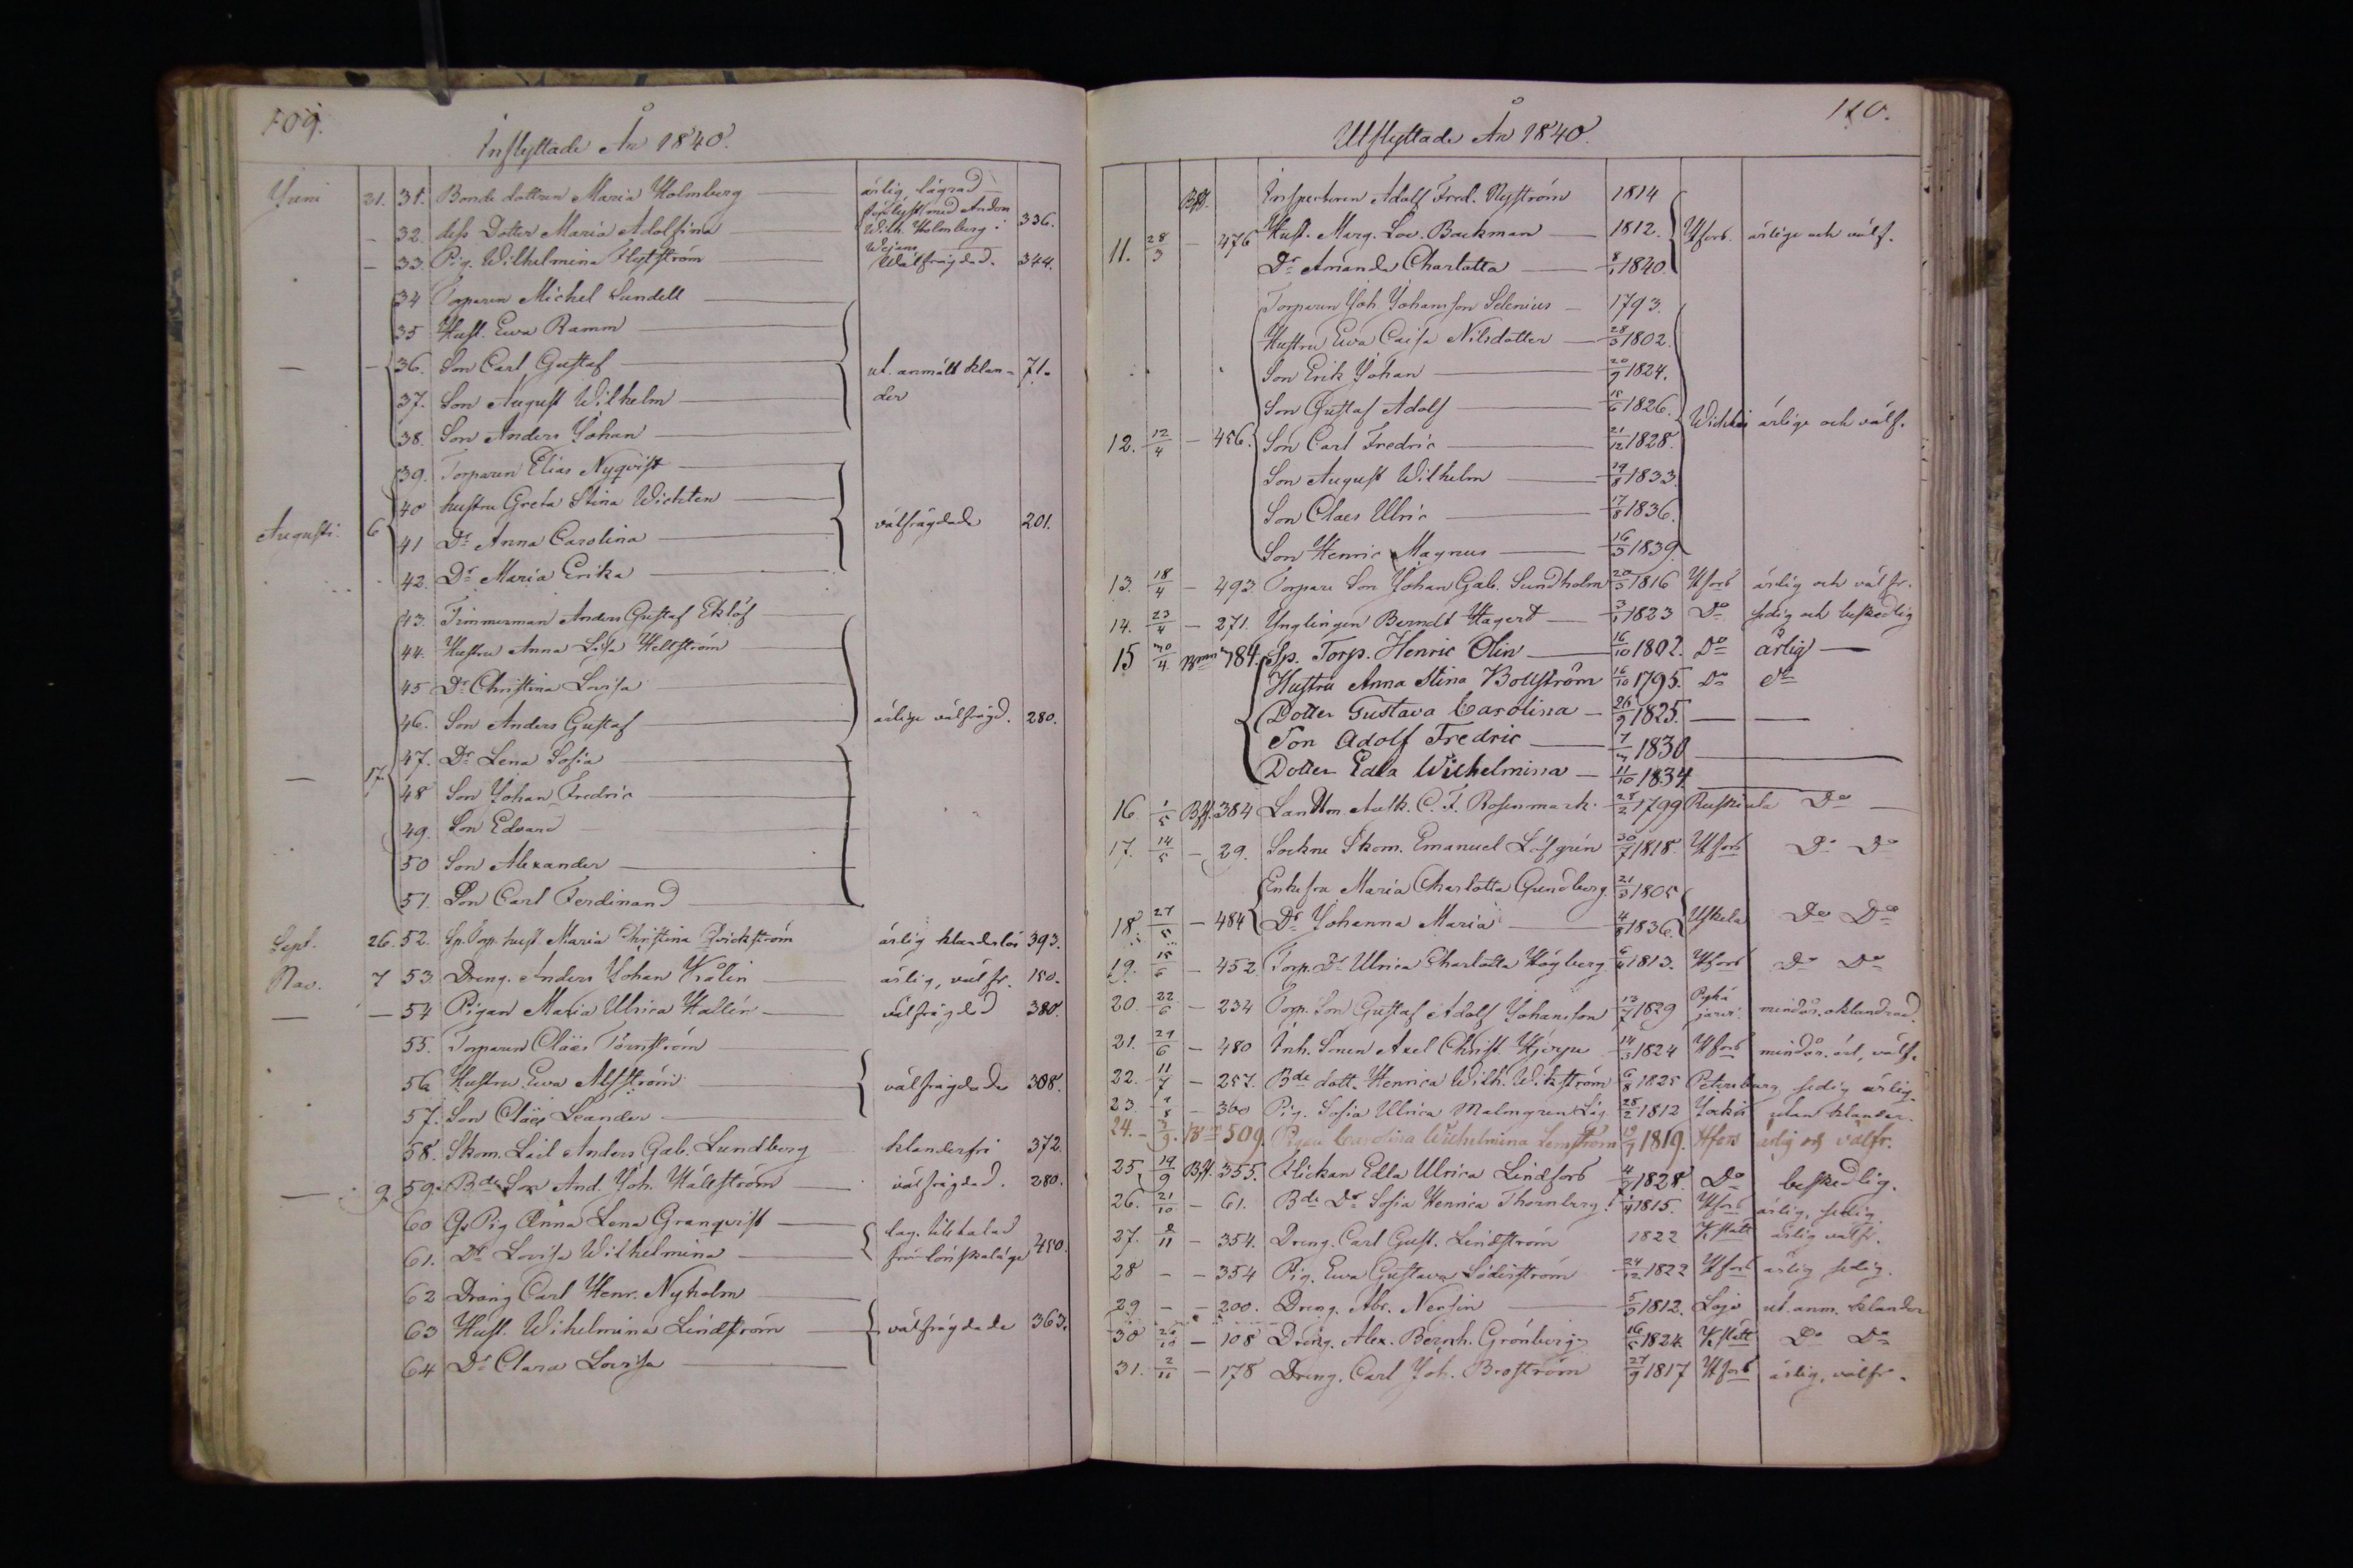 109.
Inflyttade År 1840.
Juni 21. 31. Bonde dottren Maria Holmberg — ärlig lägrad
— 32. dess Dotter Maria Adolfina — Wilh. Holmberg i 336.
— 33. Pig. Wilhelmina Flytström — Wälfrägdad. 344.
34 Torparen Michel Sundell —
35 Hust. Ewa Ramm —
— — 36. Son Carl Gustaf — ut. anmält klan- 71.
37. Son August Wilhelm — der
38. Son Anders Johan —
39. Torparen Elias Nyqvist —
40 hustru Greta Stina Wichten —
Augusti. 6 41 Dr Anna Carolina — välfrägdade 201.
42. Dr Maria Erika —
43. Timmerman Anders Gustaf Eklöf —
44. Hustru Anna Lisa Hellström —
45 Dr Christina Lovisa —
46. Son Anders Gustaf — ärlige välfrägd. 280.
47. Dr Lena Sofia —
— 17 48 Son Johan Fredric —
49. Son Edvard —
50 Son Alexander —
51. Son Carl Ferdinand —
Sept. 26. 52. Sp. Torp. hust. Maria Christina Qvickström ärlig klanderlös 393.
Nov. 7 53 Dreng. Anders Johan Kålin — ärlig, välfr. 150.
— — 54 Pigan Maria Ulrica Hallén — välfrägdad 380.
55. Torparen Claës Törnström —
56 Hustru Ewa Alfström — välfrägdade 308.
57. Son Claës Leander —
58. Skom. Lärl Anders Gab. Lundberg klanderfri 372.
— 9 59. Bde Son And. Joh. Hällström — välfrägdad. 280.
60 Gs Pig Anna Lena Granqvist —
61. Dr Lovisa Wilhelmina — 450.
62 Dräng Carl Henr. Nyholm —
63 Hust. Wilhelmina Lindström — välfrägdade 363.
64 Dr Clara Lovisa —
110.
Utflyttade År 1840.
Bff. Inspectoren Adolf Fred. Nyström 1814
11. 28/3 — 476 Hust. Marg. Lov. Backman — 1812. Hfors. ärlige och välf.
Dr Amanda Charlotta — 8/1 1840.
Torparen Joh Johansson Selenius — 1793.
Hustru Ewa Caisa Nilsdotter — 28/3 1802.
Son Erik Johan — 20/9 1824.
Son Gustaf Adolf — 15/6 1826.
12. 12/4 — 456. Son Carl Fredric — 21/12 1828. Wichtis ärlige och välf.
Son August Wilhelm — 19/8 1833.
Son Claes Ulric — 17/8 1836.
Son Henric Magnus — 16/3 1839.
13. 18/4 — 493. Torpare Son Johan Gab. Sundholm 20/3 1816 Hfors ärlig och välfr.
14. 23/4 — 271. Ynglingen Berndt Hagert — 3/1 1823 Do sedig och beskedlig
15 30/4 Bmn 184. Sp. Torp. Henric Olin — 16/10 1802. Do ärlig —
Hustru Anna Stina Bollström 16/10 1795. Do do
Dotter Gustava Carolina — 26/9 1825. — —
Son Adolf Fredric — 1830 —
Dotter Edla Wilhelmina — 11/10 1834. —
16. 1/5 Bff. 384 Landtm. Ausk. C. F. Rosenmark. 28/2 1799 Ruskiala Do —
17. 14/5 — 29. Sockne Skom. Emanuel Löfgrén 30/7 1818. Hfors Do Do
Enkefru Maria Charlotta Gundberg. 21/3 1805
18. 27/5 — 484 Dr Johanna Maria — 4/8 1836. Uskela Do Do
19. 15/6 — 452. Torp. Dr Ulrica Charlotta Högberg 6/4 1813. Hfors Do Do
20. 22/6 — 234 Torp. Son Gustaf Adolf Johansson 13/7 1829 Pyhäjärvi. mindår. oklandrad.
21. 29/6 — 480 Inh. Sonen Axel Christ. Hjerpe 14/3 1824 Hfors mindår. ärl, välf.
22. 11/7 — 257. Bde dott. Henrica Wilh. Wikström 6/8 1825 Petersburg sedig ärlig.
23. 1/8 — 360 Pig. Sofia Ulrica Malmgren 28/2 1812 Jockis utan klander.
24. — 3/9. Bmn 509. Pigan Carolina Wilhelmina Lemström 19/7 1819. Hfors ärlig och välfr.
25. 19/9 Bff. 355. Flickan Edla Ulrica Lindfors 4/7 1828. Do beskedlig.
26. 21/10 — 61. Bde Dr Sofia Henrica Thornberg 1/4 1815. Hfors ärlig, sedig
27. 8/11 — 354. Dreng. Carl Gust. Lindström 1822 Kslätt ärlig välfr.
28 — — 354 Pig. Ewa Gustava Söderström 24/12 1822 Hfors ärlig sedig.
29 — — 200. Dreng. Abr. Nersin — 5/3 1812. Lojo ut. anm. klander
30 20/10 — 108 Dreng. Alex. Bernh. Grönberg 16/5 1824. Kslätt Do Do
31. 2/11 — 178 Dreng. Carl Joh. Broström 27/9 1817 Hfors ärlig, välfr.